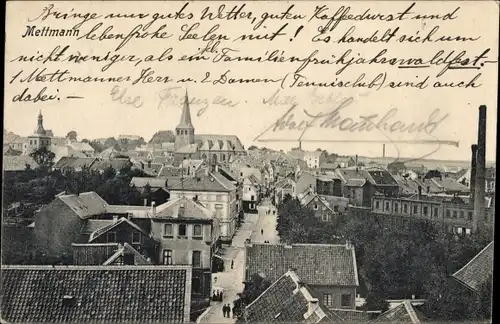 Mettmann
Bringe nur gutes Wetter, guten Kaffedurst und
lebensfrohe Seelen mit! Es handelt sich um
nicht weniger, als um ein Familienfrühjahrswaldfest.—
1 Mettmanner Herr u. 2 Damen (Tennisclub) sind auch
dabei. —
Else
Adolf